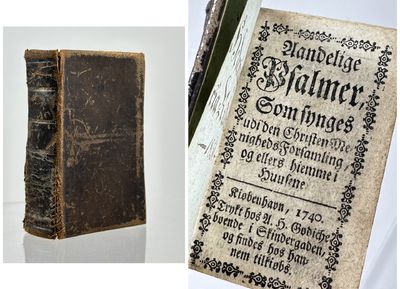 Aandelige
Psalmer,
Som synges
udi den Christen Me-
nigheds Forsamling
og ellers hiemme i
Huusene
Kiøbenhavn, 1740.
Trykt hos A. H. Godiche
boende i Skindergaden,
og findes hos han-
nem tilkiøbs.